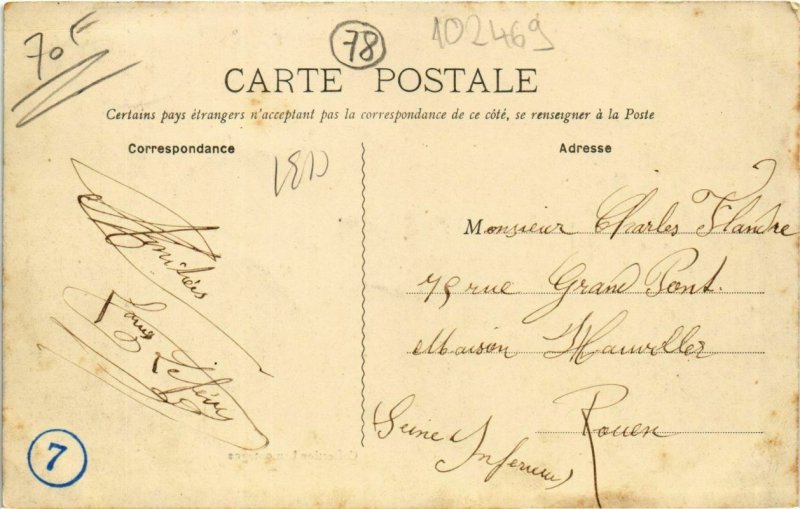 70F
78
102469
CARTE POSTALE
Certains pays étrangers n'acceptant pas la correspondance de ce côté, se renseigner à la Poste
Correspondance
Amitiés
Louis Lefèvre
7
Adresse
Monsieur Charles Flandre
79 rue Grand Pont.
Maison
Rouen
(Seine Inferieure)